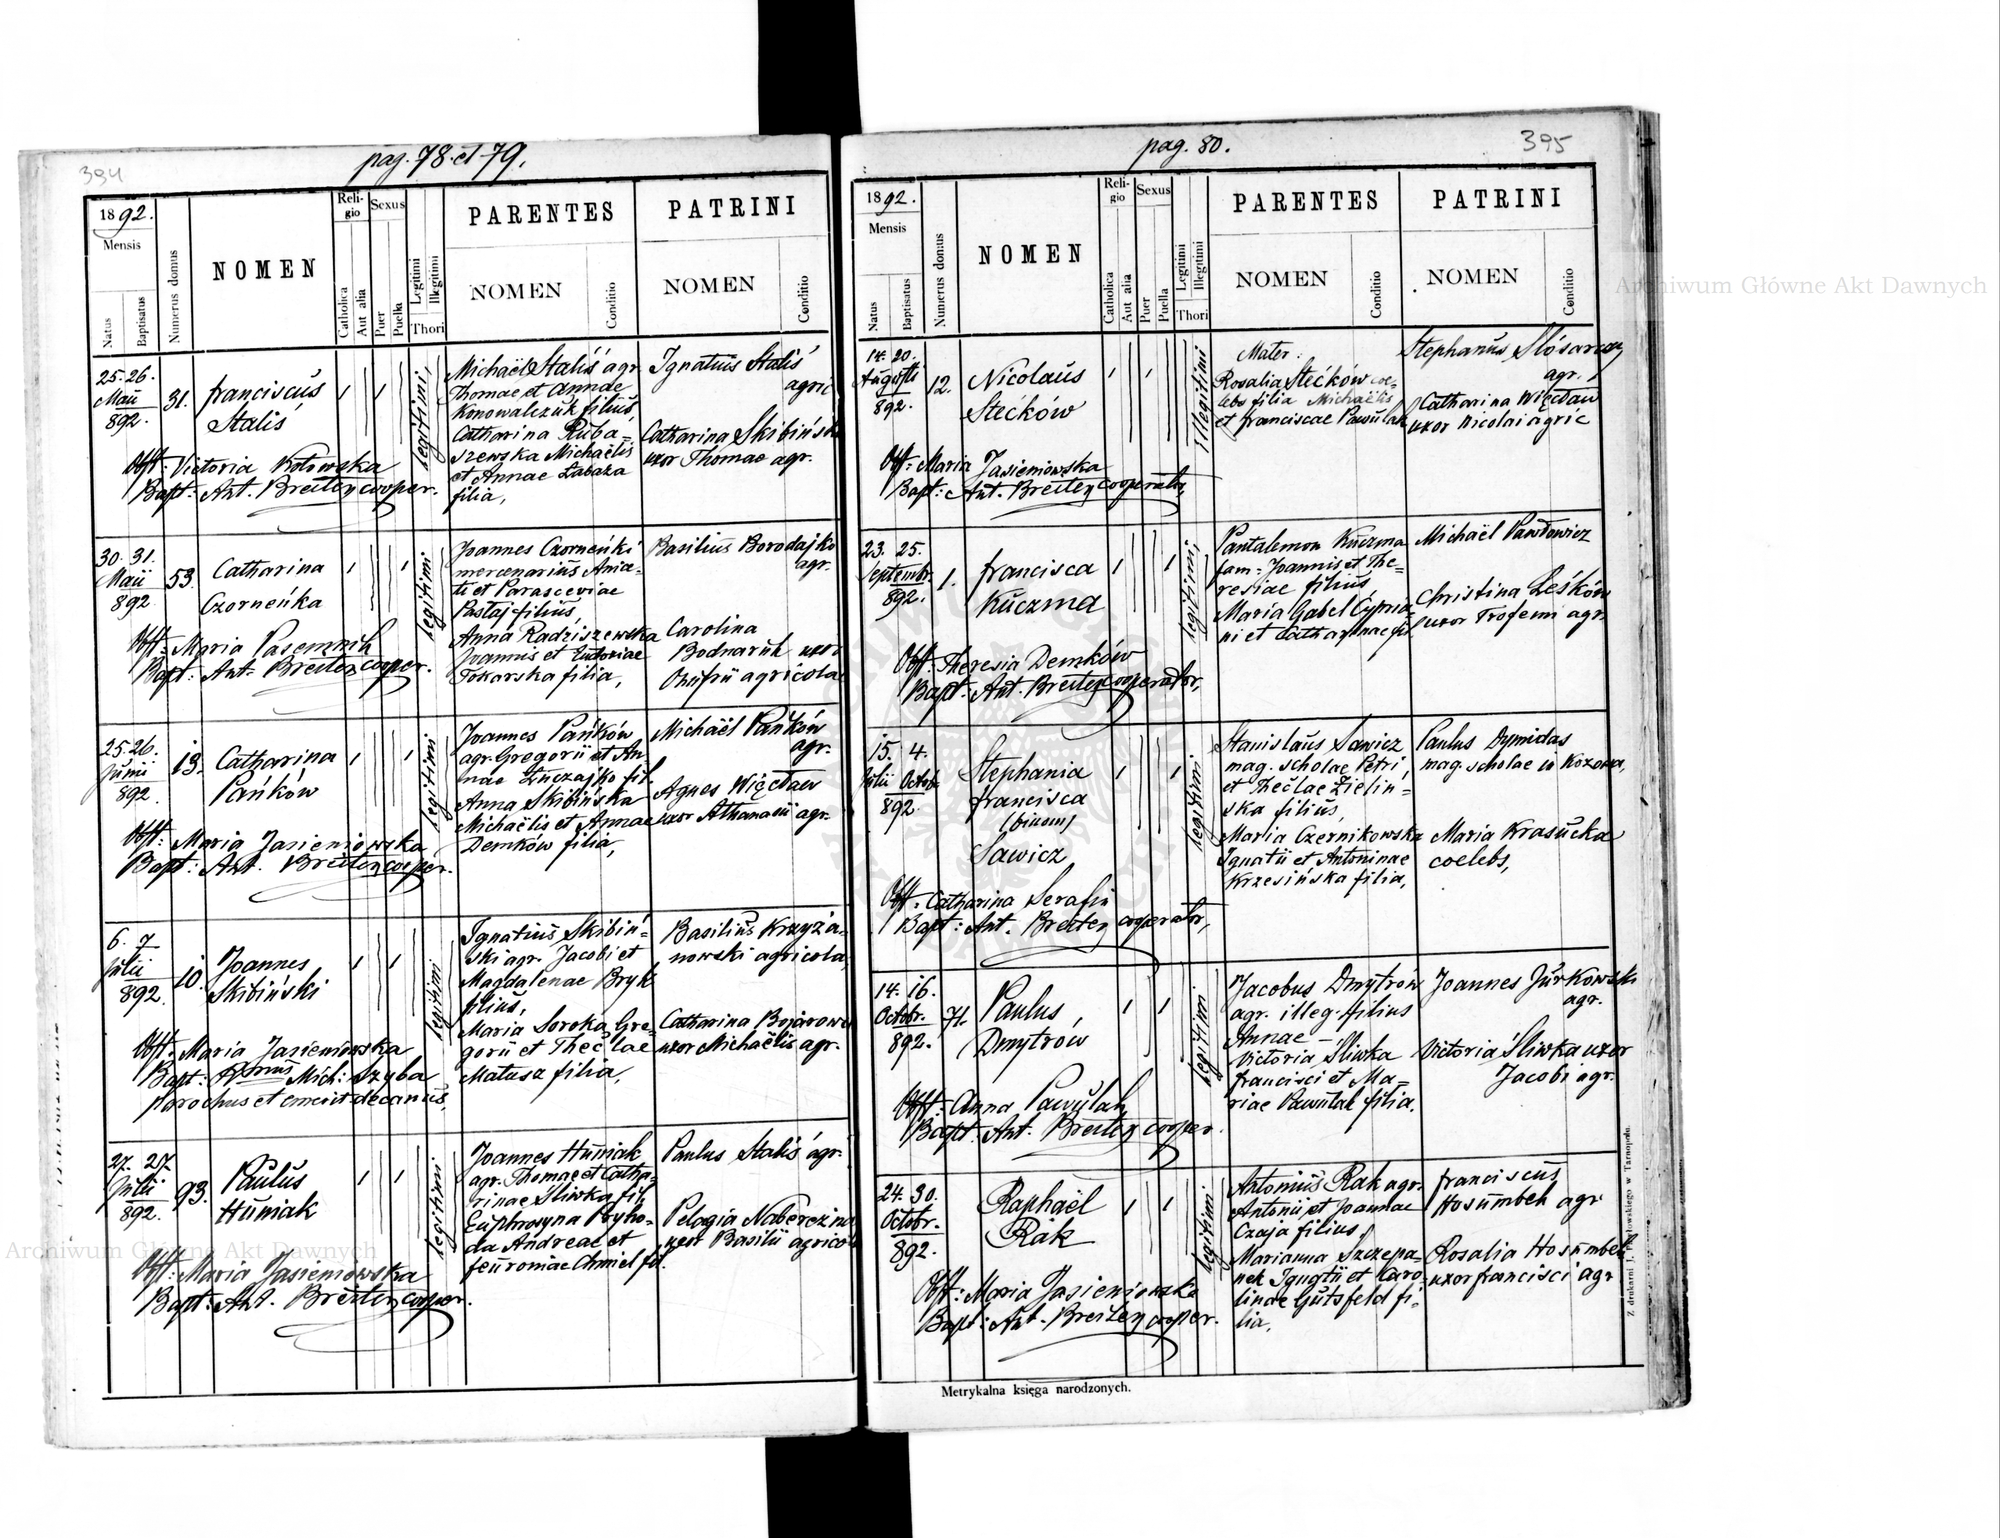 394
pag. 78. et 79.
1892.
Mensis
Natus
Baptisatus
Numerus domus
NOMEN
Religio
Catholica
Aut alia
Sexus
Puer
Puella
Legitimi
Illegitimi
Thori
PARENTES
NOMEN
Conditio
PATRINI
NOMEN
Conditio
25. 26.
Maii
892.
31.
Franciscus
Staliś
legitimi,
Michaël Staliś agr
Thomae et Annae
Konowalczuk filius,
Catharina Ruba=
szewska Michaëlis
et Annae Łabaza
filia,
Ignatius Staliś
agric
Catharina Skibińska
uxor Thomae agr.
Obst: Victoria Kotowska
Bapt: Ant. Breiter cooper.
30. 31.
Maii
892
53.
Catharina
Czorneńka
legitimi
Joannes Czorneńki
mercenarius Ania=
ti et Parasceviae
Pastaj filius,
Anna Radziszewska
Joannis et Eudoxiae
Tokarska filia,
Basilius Borodajko
agr.
Carolina
Bodnaruk uxor
Onufrii agricolae
Obst: Maria Pasemnik
Bapt: Ant. Breiter cooper.
25. 26.
Junii
892.
13.
Catharina
Pańków
legitimi
Joannes Pańków
agr. Gregorii et An
nae Łuczajko fil.
Anna Skibińska
Michaëlis et Annae
Demków filia,
Michaël Pańków
agr.
Agnes Więcław
uxor Athanasii agr.
Obst: Maria Jasieniowska
Bapt: Ant. Breiter cooper.
6. 7
Julii
892.
10.
Joannes
Skibiński
legitimi
Ignatius Skibiń=
ski agr. Jacobi et
Magdalenae Bryk
filius,
Maria Soroka Gre=
gorii et Theclae
Matusz filia,
Basilius Krzyża=
nowski agricola,
Catharina Bojarowa
uxor Michaëlis agr.
Obst: Maria Jasieniowska
Bapt: Mich: Szyba
parochus et emerit decanus,
27. 27.
Julii
892.
93.
Paulus
Huniak
legitimi
Joannes Huniak
agr. Thomae et Catha=
rinae Śliwka fil,
Euphrosyna Pryho=
da Andreae et
Feuroniae Chmiel fil.
Paulus Staliś agr.
Pelagia Naberezna
uxor Basilii agricolae
Obst: Maria Jasieniowska
Bapt: Ant. Breiter cooper.
395
pag. 80.
1892.
Mensis
Natus
Baptisatus
Numerus domus
NOMEN
Religio
Catholica
Aut alia
Sexus
Puer
Puella
Legitimi
Illegitimi
Thori
PARENTES
NOMEN
Conditio
PATRINI
NOMEN
Conditio
14. 20.
Augusti
892.
12.
Nicolaus
Stećków
Illegitimi
Mater.
Rosalia Stećków coe=
lebs filia Michaëlis
et Franciscae Pawulak
Stephanus Ślósarczy
agr.
Catharina Więcław
uxor Nicolai agric
Obst: Maria Jasieniowska
Bapt: Ant. Breiter cooperator,
23. 25.
Septembr.
892.
1.
Francisca
Kuczma
legitimi,
Pantalemon Kuczma
fam: Joannis et The=
resiae filius
Maria Gabel Cypria=
ni et Catharinae fil.
Michaël Pawłowicz
Christina Leśków
uxor Trofemi agr.
Obst: Theresia Demków
Bapt: Ant. Breiter cooperator,
15. 4.
Julii Octob.
892
Stephania
Francisca
(binom)
Sawicz
legitimi
Stanislaus Sawicz
mag. scholae Petri,
et Theclae Zielin=
ska filius,
Maria Czernikowska
Ignatii et Antoninae
Krzesińska filia,
Paulus Dymidas
mag. scholae in Kozowa,
Maria Krasucka
coelebs,
Obst. Catharina Serafin
Bapt: Ant. Breiter cooperator,
14. 16.
Octobr.
892.
71.
Paulus,
Dmytrów
legitimi
Jacobus Dmytrów
agr. illeg. filius
Annae —
Victoria Śliwka
Francisci et Ma=
riae Pawulak filia.
Joannes Jurkowski
agr.
Victoria Śliwka uxor
Jacobi agr.
Obst: Anna Pawulak
Bapt: Ant. Breiter cooper.
24. 30.
Octobr.
892.
Raphaël
Rak
legitimi
Antonius Rak agr.
Antonii et Joannae
Czaja filius,
Marianna Szczepa=
nek Ignatii et Caro=
linae Gutsfeld fi=
lia,
Franciscus
Hosumbek agr
Rosalia Hosumbek
uxor Francisci agr
Obst: Maria Jasieniowska
Bapt: Ant. Breiter cooper.
Metrykalna księga narodzonych.
Archiwum Główne Akt Dawnych
Archiwum Główne Akt Dawnych